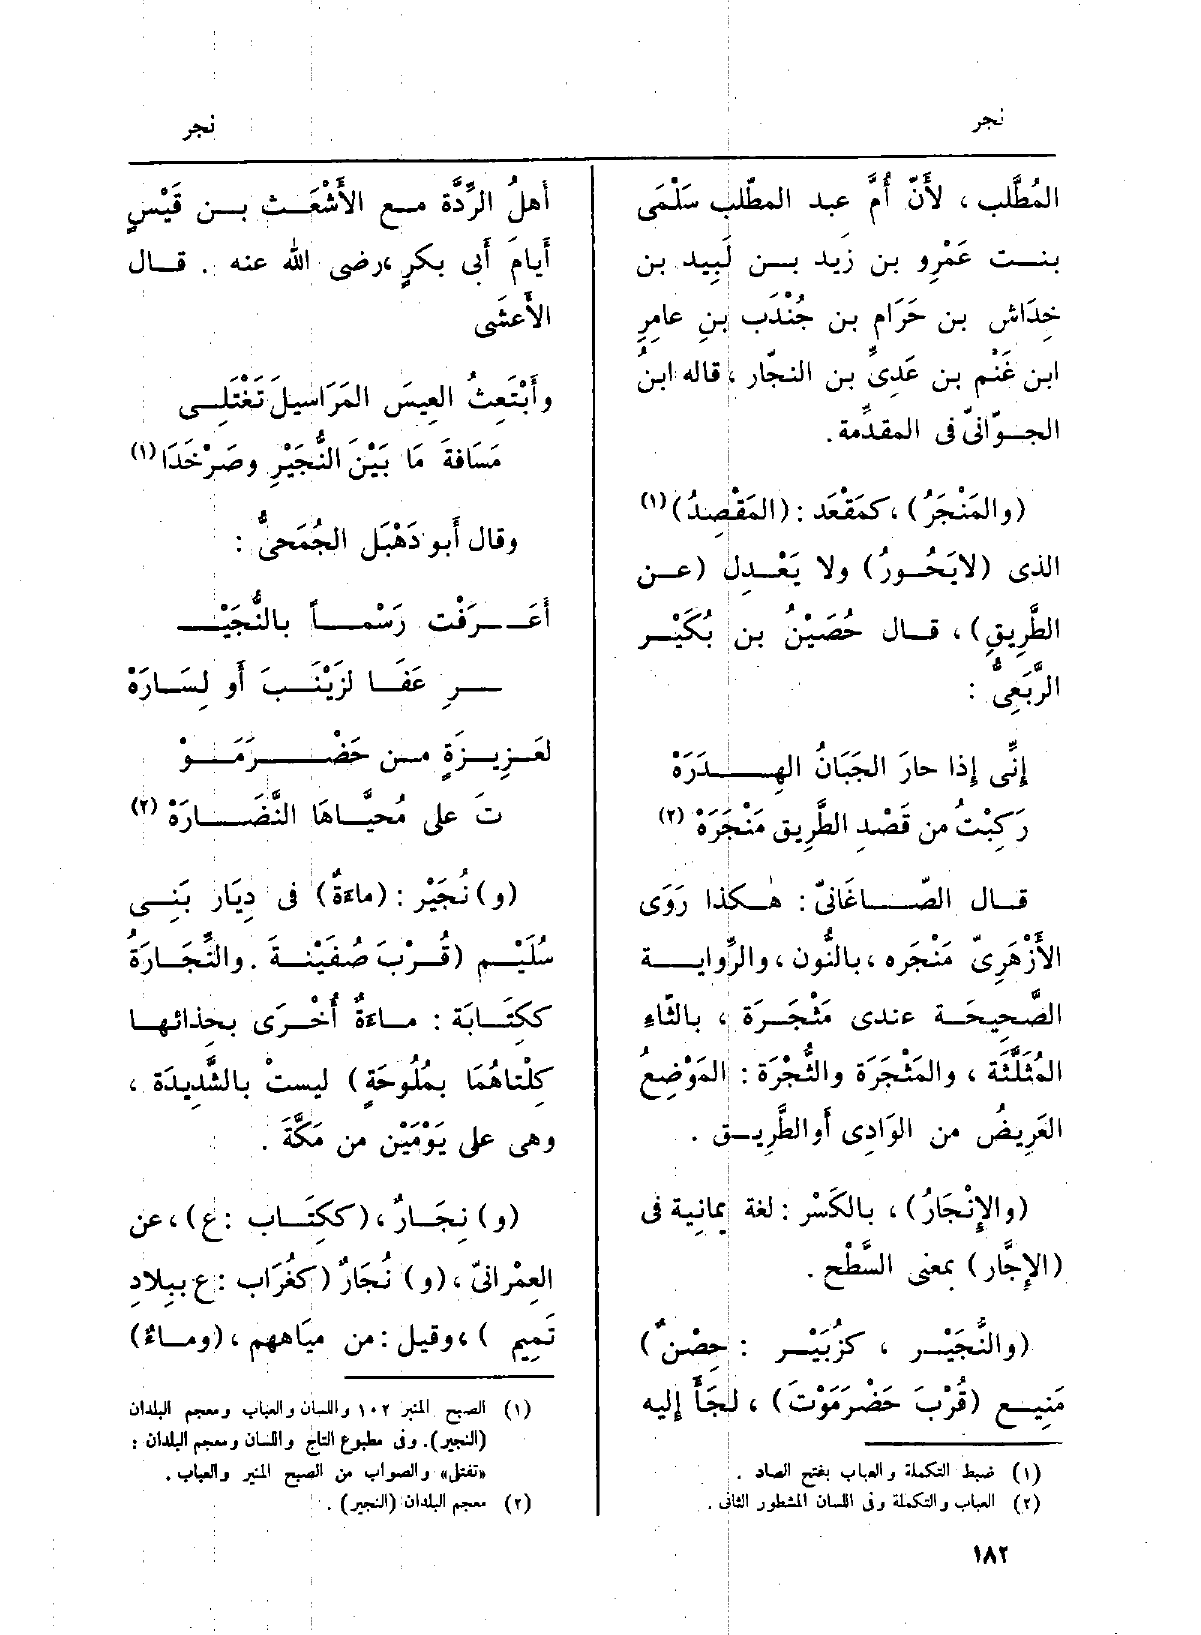 نجر
نجر
المُطَّلب ، لأَنّ أُمّ عبد المطّلب سَلْمَى
بنت عَمْرِو بن زَيد بن لَبِيد بن
خِدَاش بن حَرَام بن جُنْدَب بنِ عامِرِ
ابن غَنْم بن عَدِىِّ بن النجّار ، قاله ابنُ
الجوّانىّ فى المقدِّمة .
(والمَنْجَرُ) ، كمَقْعَد : (المَقْصِدُ)(١)
الذى (لايَحُورُ) ولا يَعْدِل (عن
الطَّرِيقِ) ، قال حُصَيْنُ بن بُكَيْر
الرَّبَعِىُّ :
إِنِّى إذا حارَ الجَبَانُ الهِدَرَهْ
رَكِبْتُ من قَصْدِ الطَّرِيق مَنْجَرَهْ (٢)
قال الصّاغَانىّ : هٰكذا رَوَى
الأَزْهَرِىّ مَنْجَره ، بالنُّون ، والرِّواية
الصَّحِيحَة عندى مَثْجَرَة ، بالثّاءِ
المُثَلَّثَة ، والمَثْجَرَة والثُّجْرَة : المَوْضِعُ
العَرِيضُ من الوَادِى أَو الطَّرِيق .
(والإِنْجَارُ) ، بالكَسْر : لغة يمانية فى
(الإِجَّار) بمعنى السَّطْح .
(والنُّجَيْر ، كزُبَيْر : حِصْنٌ)
مَنِيع (قُرْبَ حَضْرَمَوْتَ) ، لَجَأَ إليه
(١) ضبط التكملة والعباب بفتح الصاد .
(٢) العباب والتكملة وفى اللسان المشطور الثانى .
أَهلُ الرِّدَّة مع الأَشْعَث بن قَيْسٍ
أيامَ أَبى بكرٍ ، رضى الله عنه . قال
الأَعشَى
وأَبْتَعِثُ العِيسَ المَرَاسِيلَ تَغْتَلِى
مَسَافةَ مَا بَيْنَ النُّجَيْرِ وصَرْخَدَا (١)
وقال أَبو دَهْبَل الجُمَحىُّ :
أَعَرَفْت رَسْماً بالنُّجَيْـ
ـرِ عَفَا لزَيْنَبَ أَو لِسَارَهْ
لعَزِيزَةٍ من حَضْرَمَوْ
تَ على مُحيَّاهَا النَّضَارَهْ (٢)
(و) نُجَيْر : (ماءَةٌ) فى دِيَار بَنِى
سُلَيْم (قُرْبَ صُفَيْنَةَ . والنِّجَارَةُ
ككِتَابَة : ماءَةٌ أُخْرَى بحِذائها
كِلْتاهُمَا بمُلُوحَةٍ) ليستْ بالشَّدِيدَة ،
وهى على يَوْمَيْن من مَكَّةَ .
(و) نِجَارٌ ، (ككِتَاب : ع) ، عن
العِمْرانىّ ، (و) نُجَارٌ (كغُرَاب : ع ببِلادِ
تَمِيم ) ، وقيل : من مياههم ، (وماءٌ)
(١) الصبح المنير ١٠٢ واللسان والعباب ومعجم البلدان
(النجير). وفى مطبوع التاج واللسان ومعجم البلدان :
«تفتل» والصواب من الصبح المنير والعباب .
(٢) معجم البلدان (النجير) .
١٨٢